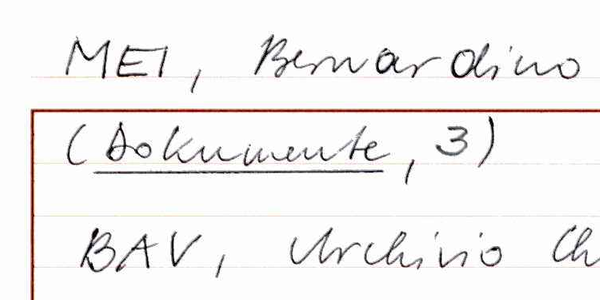 MEI, Bernardino
(Dokumente, 3)
BAV, Archivio Ch